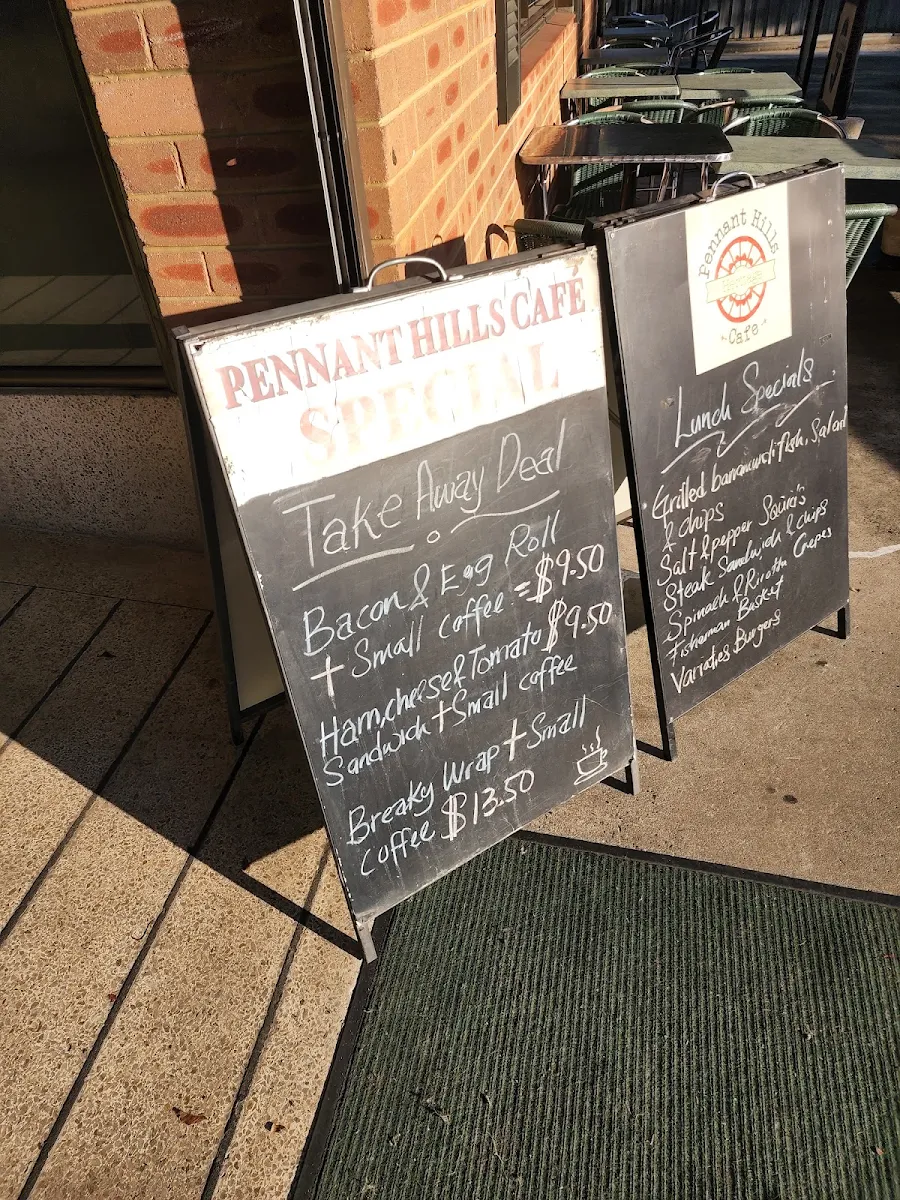 PENNANT HILLS CAFE
SPECIAL
Take Away Deal
Bacon & Egg Roll
+ Small coffee = $9.50
Ham, cheese & Tomato $9.50
Sandwich + Small coffee
Breaky Wrap + Small
coffee $13.50
Pennant Hills
Cafe
Lunch Specials
Grilled barramundi fish, Salad
& chips
Salt & pepper Squid's
Steak Sandwich & chips
Spinach & Ricotta Crepes
Fisherman Basket
Varieties Burgers